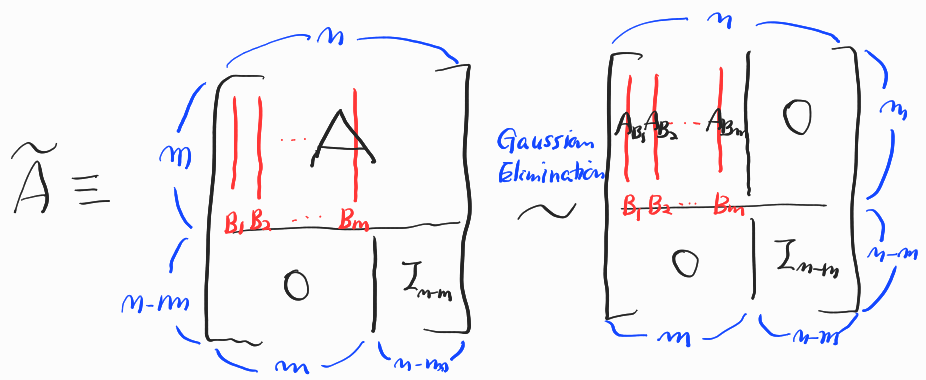 n
n
Ã ≡
m
A
B₁ B₂ ... Bₘ
n-m
O
Iₙ₋ₘ
m
n-m
Gaussian
Elimination
~
A_B₁ A_B₂ ... A_Bₘ
O
m
B₁ B₂ ... Bₘ
O
Iₙ₋ₘ
n-m
m
n-m